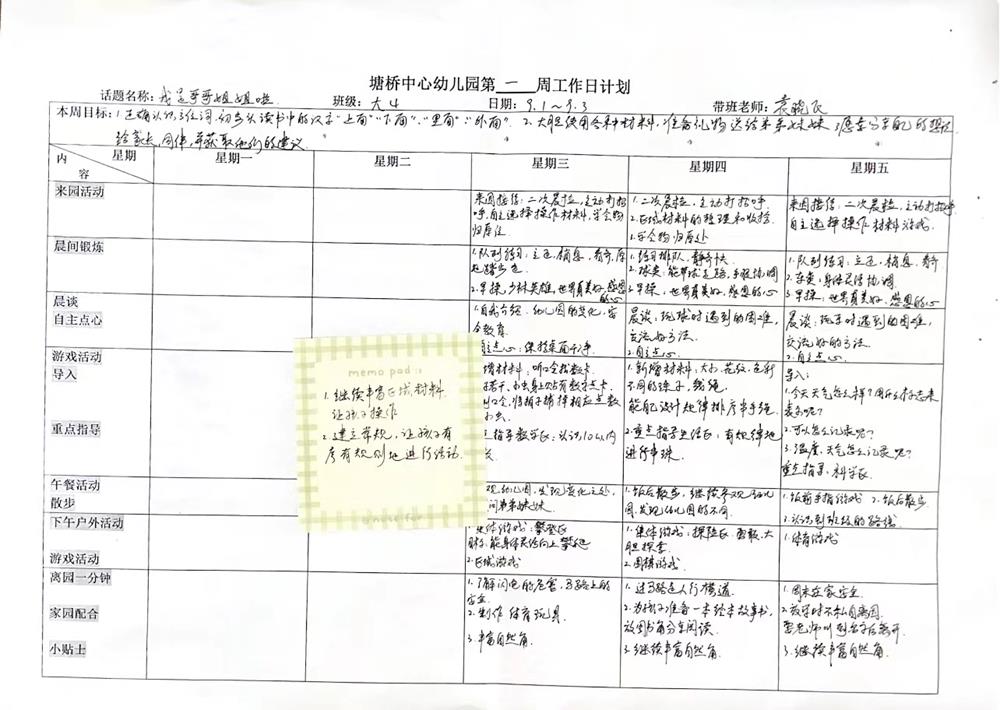 塘桥中心幼儿园第 一 周工作日计划
话题名称：我是哥哥姐姐啦 班级：大4 日期：9.1～9.3 带班老师：袁晓
本周目标：1.正确认识方位词，初步认读书中的汉字"上面""下面""里面""外面"。2.大胆使用各种材料，准备礼物送给弟弟妹妹 3.愿意分享自己的想法
给家长、同伴，并获取他们的建议
内容 星期 星期一 星期二 星期三 星期四 星期五
来园活动
来园接待：二次晨检，主动打招
呼，自主选择操作材料，学会物
归原位
1.二次晨检，主动打招呼
2.区域材料的整理和收拾
3.学会物归原处
来园接待：二次晨检，主动打招呼
自主选择操作材料游戏
晨间锻炼
1.队列练习：立正、稍息、看齐、原
地踏步走
2.早操：少林英雄，世界真美好，感恩
的心
1.练习排队，静齐快
2.球类：能带球走路，手眼协调
3.早操：世界真美好，感恩的心
1.队列练习：立正、稍息、看齐
2.车类：身体灵活协调
3.早操：世界真美好，感恩的心
晨谈
自主点心
1.自我介绍，幼儿园的变化，安
全教育
自主点心：保持桌面干净
晨谈：玩球时遇到的困难，
交流好方法
2.自主点心
晨谈：玩车时遇到的困难，
交流好的方法
2.自主点心
游戏活动
导入
重点指导
增材料：听口令找数卡
若干，小虫身上贴有数字点卡
口令，将梢子捕择相应点数
小虫
指导数学区：认识10以内
1.新增材料：大小、花纹、色彩
不同的珠子，线绳
能自己设计规律排序串手链
2.重点指导生活区：有规律地
进行串珠
导入：
1.今天天气怎么样？用什么标志来
表示呢？
2.可以怎么记录呢？
3.温度、天气怎么记录呢？
重点指导：科学区
午餐活动
散步
观幼儿园，发现变化之处，
问弟弟妹妹
1.饭后散步，继续参观幼儿
园，发现幼儿园的不同
1.饭前手指游戏 2.饭后散步
3.认识到班级的路线
下午户外活动
游戏活动
集体游戏：攀登区
目标：能身体灵活向上攀爬
2.区域游戏
1.集体游戏：探险区，勇敢、大
胆探索
2.围棋游戏
1.体育游戏
离园一分钟
家园配合
小贴士
1.了解闪电的危害，马路上的
安全
2.制作体育玩具
3.丰富自然角
1.过马路走人行横道
2.为孩子准备一本绘本故事书，
放图书角分享阅读
3.继续丰富自然角
1.周末在家安全
2.放学时不私自离园
需老师叫到名字后离开
3.继续丰富自然角
memo pad
1.继续丰富区域材料
让孩子操作
2.建立常规，让孩子有
序有规则地进行活动